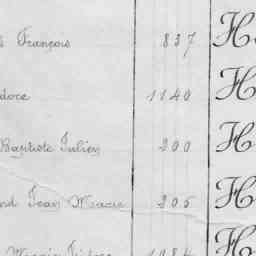 François 837 H
dore 1140 H
Baptiste Julien 200 H
Jean Marie 205 H
Marie Isidore 1084 H